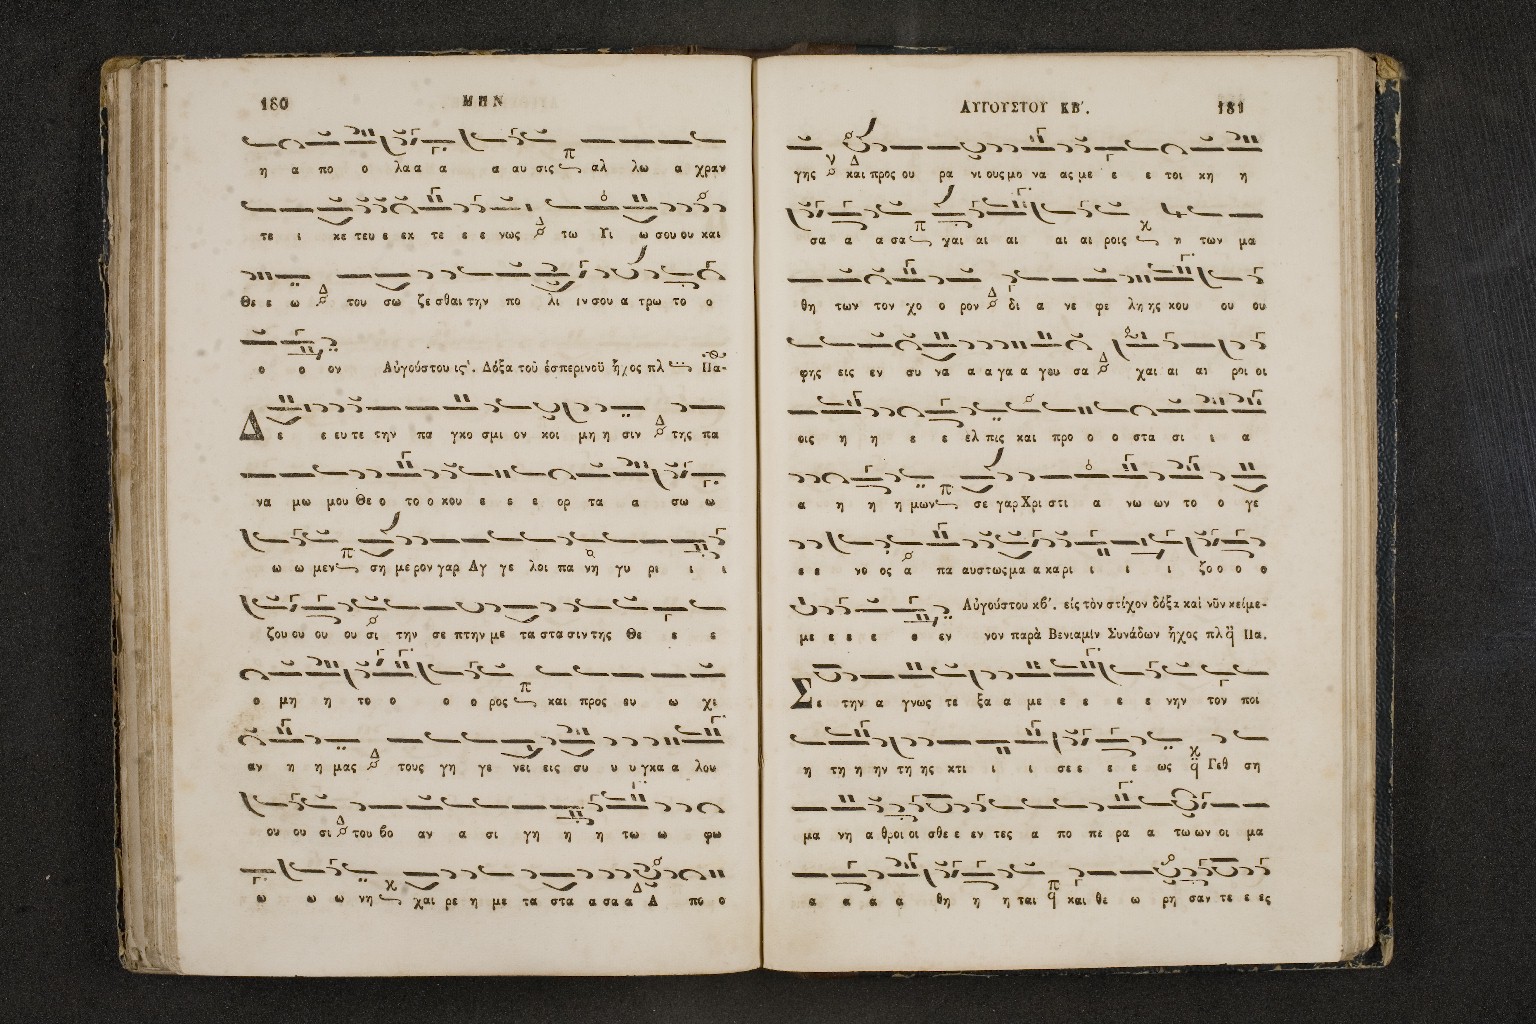 180 ΜΗΝ
η α πο ο λα α α α αυ σις αλ λω α χραν
τε ι κε τευ ε εκ τε ε ε νως τω Υι ω σου ου και
Θε ε ω του σω ζε σθαι την πο λι ιν σου α τρω το ο
ο ο ον Αὐγούστου ις'. Δόξα τοῦ ἑσπερινοῦ ἦχος πλ Πα-
Δ ε ε ευ τε την πα γκο σμι ον κοι μη η σιν της πα
να μω μου Θε ο το ο κου ε ε ε ορ τα α σω ω
ω ω μεν ση με ρον γαρ Αγ γε λοι πα νη γυ ρι ι ι
ζου ου ου ου σι την σε πτην με τα στα σιν της Θε ε ε
ο μη η το ο ο ο ρος και προς ευ ω χι
αν η η μας τους γη γε νει εις συ υ υ γκα α λου
ου ου σι του βο αν α σι γη η η τω ω φω
ω ω ω νη χαι ρε η με τα στα α σα α Α πο ο
ΑΥΓΟΥΣΤΟΥ ΚΒ'. 181
γης και προς ου ρα νι ους μο να ας με ε ε τοι κη η
σα α α σα χαι αι αι αι αι ροις η των μα
θη των τον χο ο ρον δι α νε φε λη ης κου ου ου
φης εις εν συ να α α γα α γου σα χαι αι αι ροι οι
οις η η ε ε ελ πις και προ ο ο στα σι ι α
α η η η μων σε γαρ Χρι στι α νω ων το ο γε
ε ε νο ος α πα αυ στως μα α κα ρι ι ι ι ζο ο ο ο
με ε ε ε ε εν Αὐγούστου κβ'. εἰς τὸν στίχον δόξα καὶ νῦν κείμε-
νον παρὰ Βενιαμὶν Συνάδων ἦχος πλ Πα.
Σ ε την α γνως τε ξα α με ε ε ε ε νην τον ποι
η τη η ην τη ης κτι ι ι σε ε ε ε ως Γεθ ση
μα νη α θροι οι σθε ε εν τες α πο πε ρα α τω ων οι μα
α α α α θη η η ται και θε ω ρη σαν τε ε ες